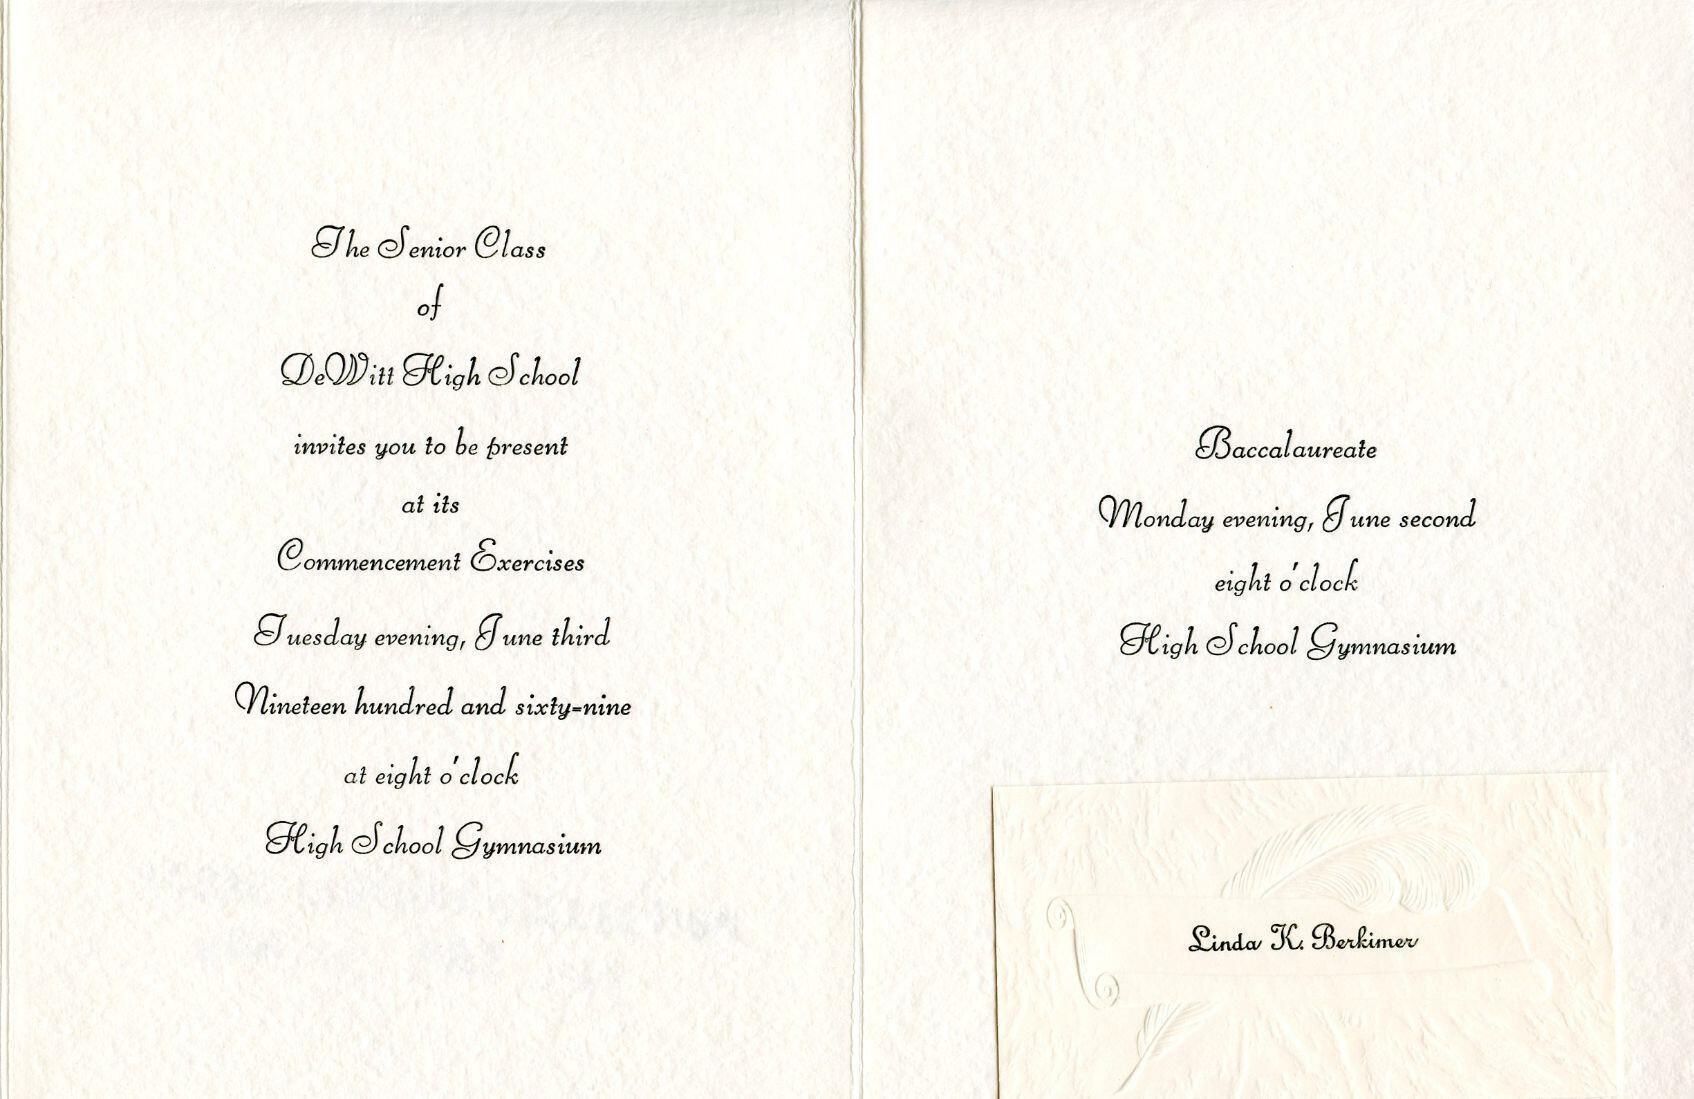 The Senior Class
of
DeWitt High School
invites you to be present
at its
Commencement Exercises
Tuesday evening, June third
Nineteen hundred and sixty-nine
at eight o'clock
High School Gymnasium
Baccalaureate
Monday evening, June second
eight o'clock
High School Gymnasium
Linda K. Berkimer